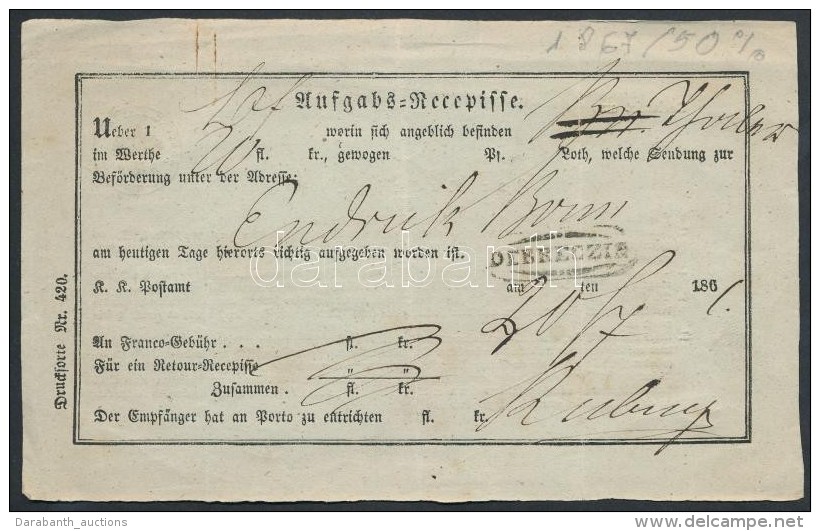 1867/50 %
Aufgabs=Recepisse.
Ueber 1 worin sich angeblich befinden
im Werthe fl. kr., gewogen Pf. Loth, welche Sendung zur
Beförderung unter der Adresse:
Endrick
am heutigen Tage hierorts richtig aufgegeben worden ist.
DEBRECZIN
K. K. Postamt am 20 ten 7 186
An Franco=Gebühr . . . fl. kr.
Für ein Retour=Recepisse " "
Zusammen . fl. kr.
Der Empfänger hat an Porto zu entrichten fl. kr.
Drucksorte Nr. 420.
darabanth
Darabanth_auctions
delcampe.net